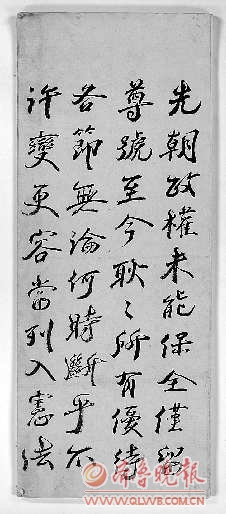 先朝政權未能保全僅留
尊號至今耿〻所有優待
各節無論何時斷乎不
許變更容當列入憲法
齊魯晚報
WWW.QLWB.COM.CN